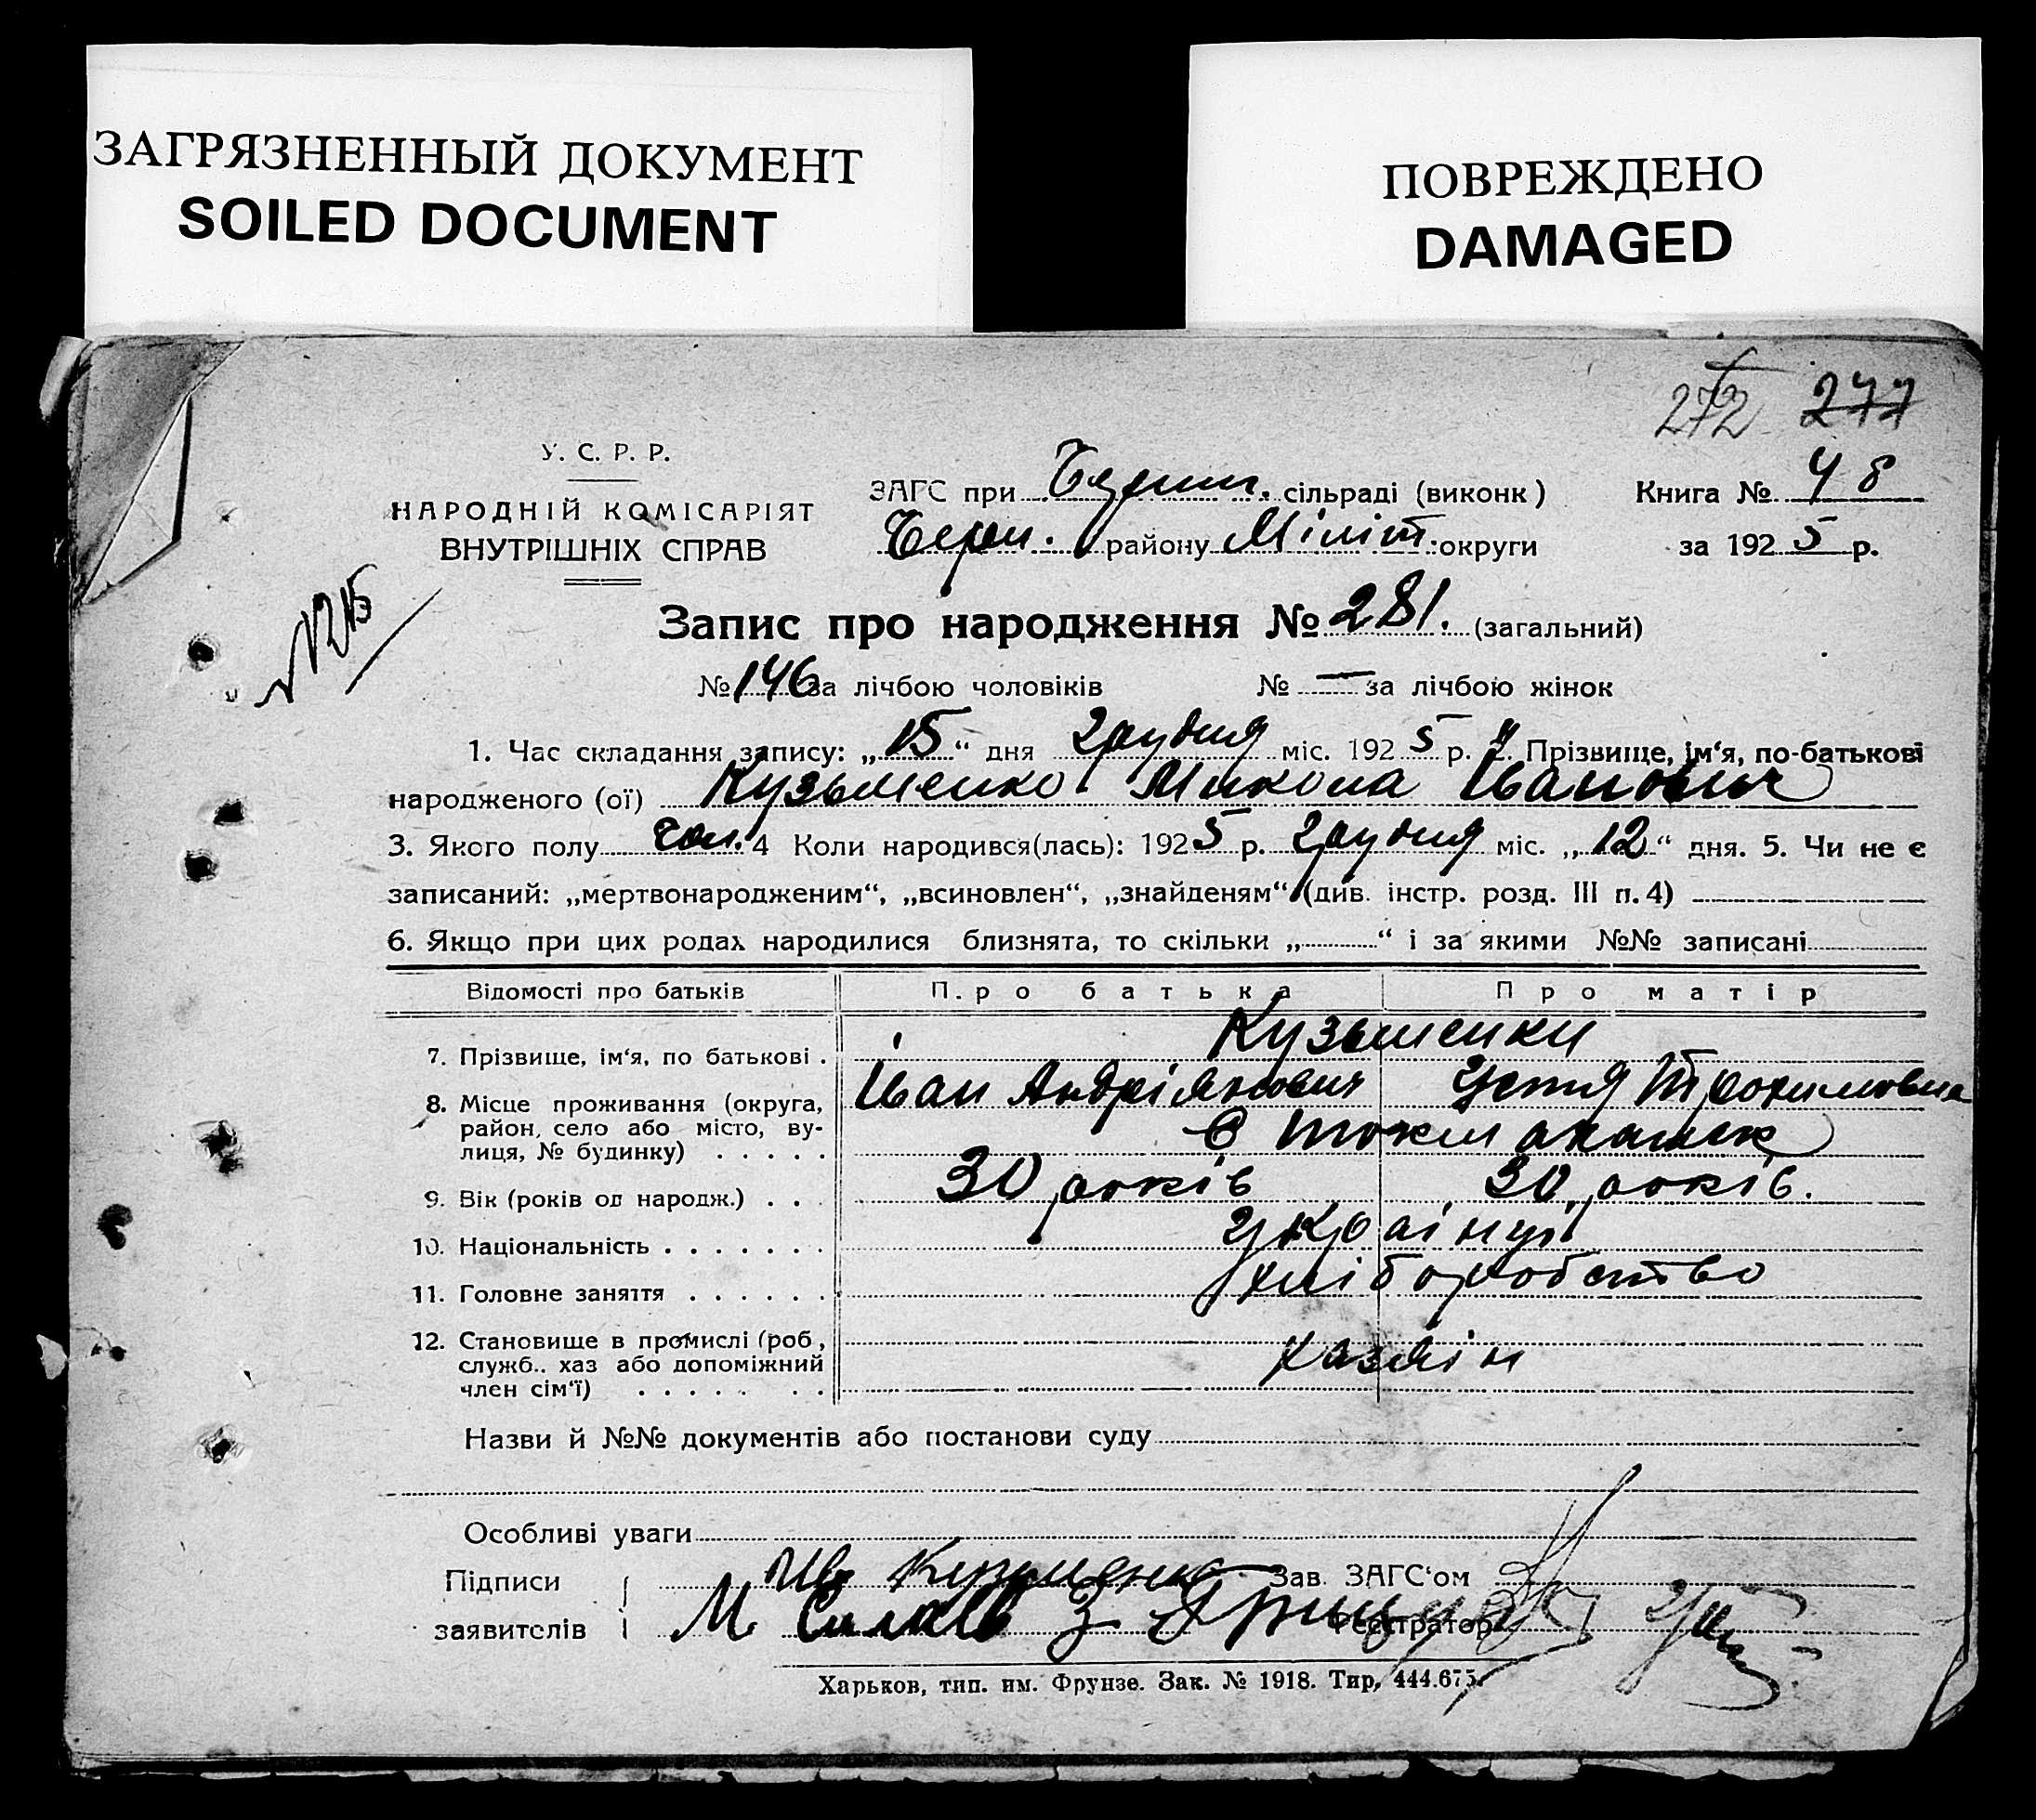 ЗАГРЯЗНЕННЫЙ ДОКУМЕНТ
SOILED DOCUMENT
ПОВРЕЖДЕНО
DAMAGED
272 277
У. С. Р. Р.
НАРОДНІЙ КОМІСАРІЯТ
ВНУТРІШНІХ СПРАВ
ЗАГС при сільраді (виконк)
Книга № 48
района Мініт. округи
за 1925 р.
Запис про народження № 281. (загальний)
№ 146 за лічбою чоловіків № — за лічбою жінок
1. Час складання запису: „15“ дня Грудня міс. 1925 р. 2. Прізвище, ім‘я, по-батькові
народженого (ої) Кузьменко Микола Іванович
3. Якого полу чол. 4 Коли народився(лась): 1925 р. Грудня міс. „12“ дня. 5. Чи не є
записаний: „мертвонародженим“, „всиновлен“, „знайденям“ (див. інстр. розд. III п. 4)
6. Якщо при цих родах народилися близнята, то скільки „ “ і за якими №№ записані
Відомості про батьків Про батька Про матір
Кузьменки
7. Прізвище, ім‘я, по батькові .
Іван Андріянович Устя Трохимовна
8. Місце проживання (округа,
район, село або місто, ву-
лиця, № будинку) . . . . .
9. Вік (років од народж.) . . . 30 років 30 років.
10. Національність . . . . . . . Українці
11. Головне заняття . . . . . . хліборобство
12. Становище в промислі (роб,
служб.. хаз або допоміжний
член сім‘ї) . . . . . . .
Назви й №№ документів або постанови суду
Особливі уваги
Підписи Ив Кузьменко Зав. ЗАГС‘ом
заявителів М Реєстратор
Харьков, тип. им. Фрунзе. Зак. № 1918. Тир, 444.675.